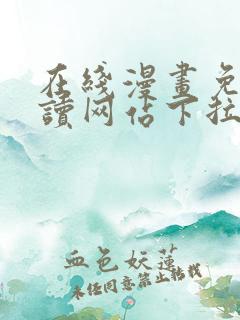 在綫漫畫免
讀网佔下拉
血色妖蓮
未经同意禁止转载